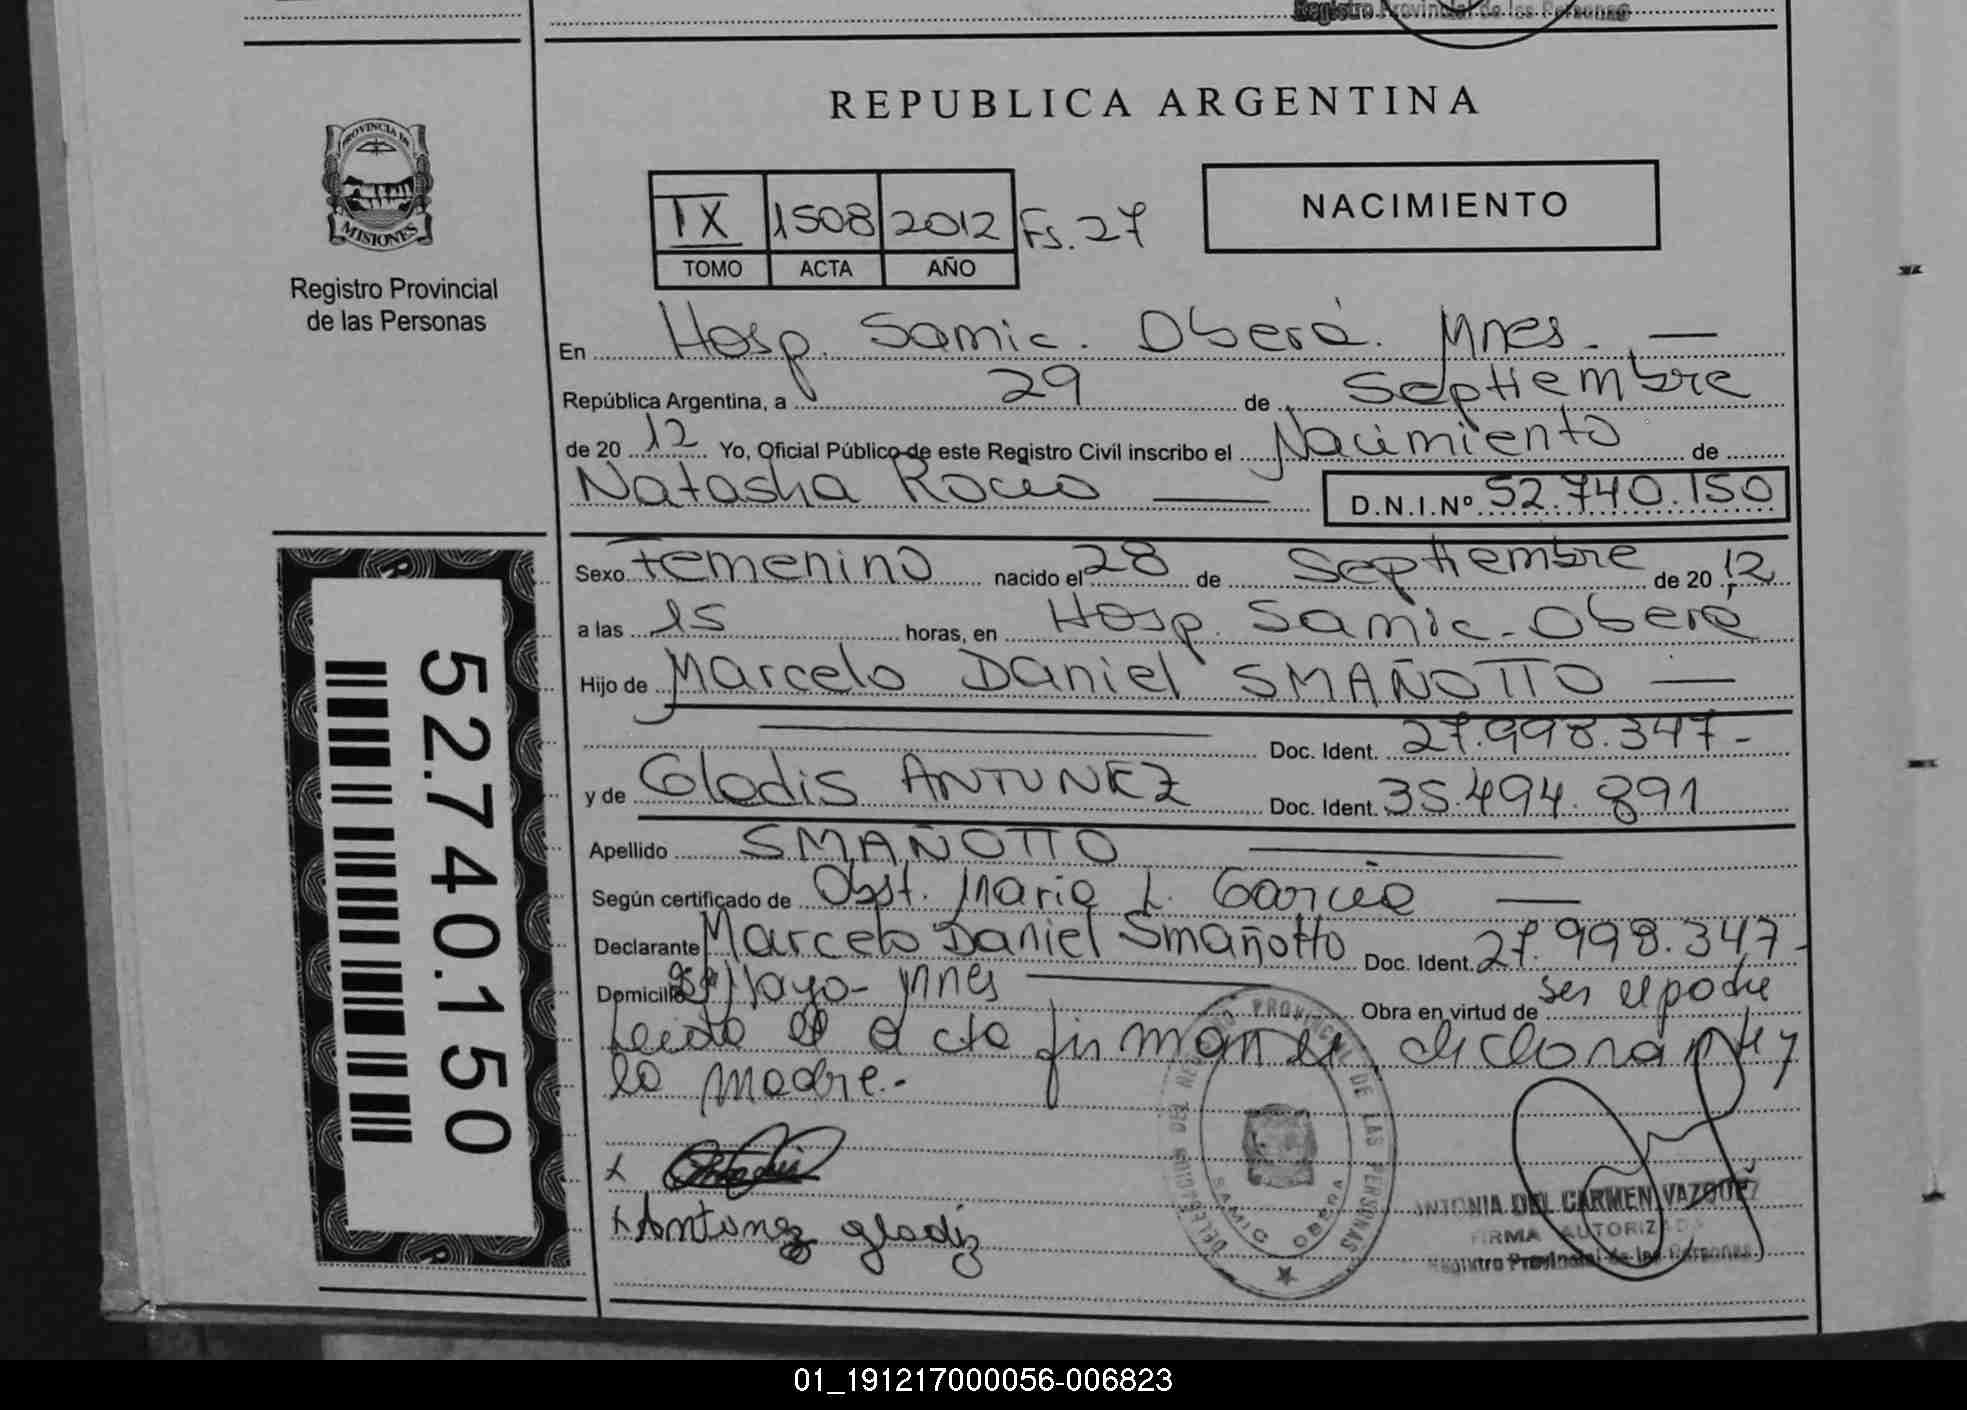 Registro Provincial de las Personas
REPUBLICA ARGENTINA
PROVINCIA DE
MISIONES
Registro Provincial
de las Personas
IX 1508 2012 Fs. 27
TOMO ACTA AÑO
NACIMIENTO
En Hosp. Samic. Oberá. Mnes.
República Argentina, a 29 de Septiembre
de 20 12 Yo, Oficial Público de este Registro Civil inscribo el Nacimiento de
Natasha Rocio D.N.I.Nº 52.740.150
Sexo Femenino nacido el 28 de Septiembre de 20 12
a las 15 horas, en Hosp. Samic - Oberá
Hijo de Marcelo Daniel SMAÑOTTO
Doc. Ident. 27.998.347-
y de Gladis ANTUNEZ Doc. Ident. 35.494.891
Apellido SMAÑOTTO
Según certificado de Obst. Maria L. Garcia
Declarante Marcelo Daniel Smañotto Doc. Ident. 27.998.347-
Domicilio Mayo - Mnes Obra en virtud de ser el padre
Leida el acta firman el declarante y
la madre.-
x
x Antunez gladiz
DELEGACION DEL REGISTRO PROVINCIAL DE LAS PERSONAS
SAMIC OBERA
ANTONIA DEL CARMEN VAZQUEZ
FIRMA AUTORIZADA
Registro Provincial de las Personas
52.740.150
01_191217000056-006823